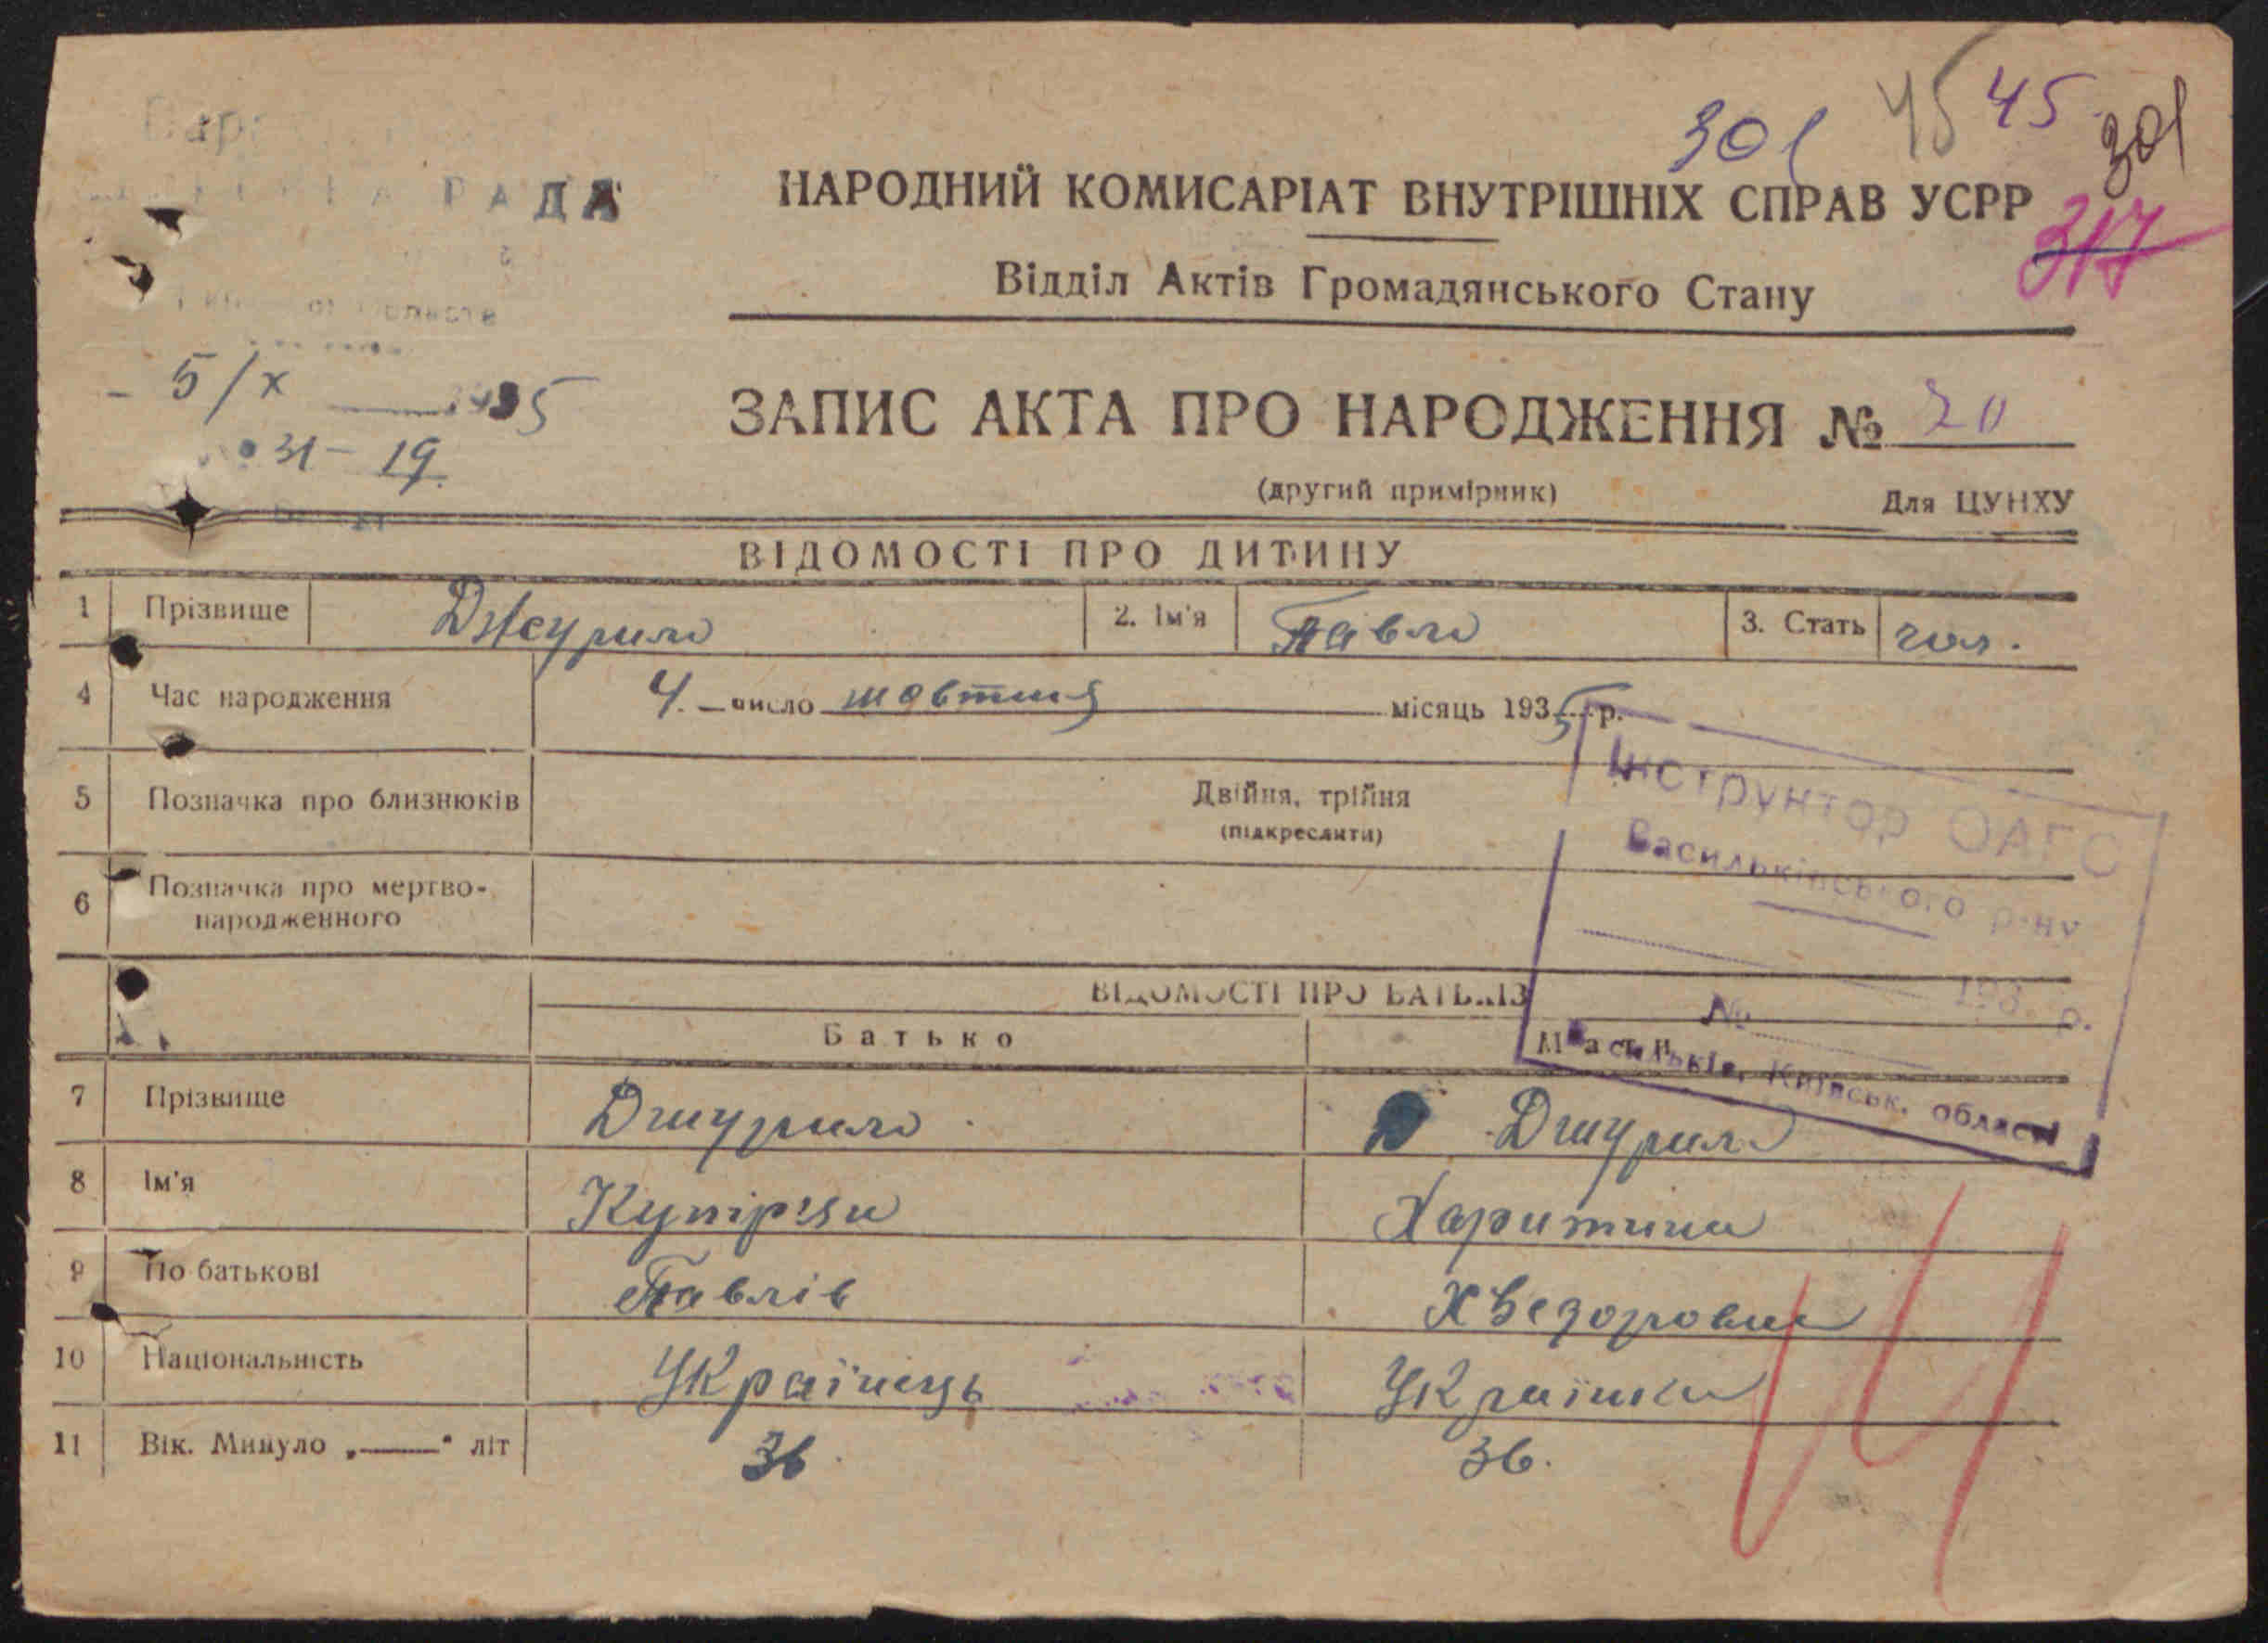 301 45 45 301
РАДА
НАРОДНИЙ КОМИСАРІАТ ВНУТРІШНІХ СПРАВ УСРР
317
Відділ Актів Громадянського Стану
5/X 1935
31 - 19.
ЗАПИС АКТА ПРО НАРОДЖЕННЯ № 20
(другий примірник) Для ЦУНХУ
ВІДОМОСТІ ПРО ДИТИНУ
1 Прізвище Джурило 2. Ім'я Павло 3. Стать чол.
4 Час народження 4. число жовтня місяць 1935 р.
Інструктор ОАГС
5 Позначка про близнюків Двійня, трійня
(підкреслити)
Васильківського р-ну
6 Позначка про мертво-
народженного
193 р.
ВІДОМОСТІ ПРО БАТЬКІВ
№
Батько Мати
Васильків, Київськ. області
7 Прізвище Джурило Джурило
8 Ім'я Купріян Харитина
9 По батькові Павлів Хведоровна
10 Національність Українець Українка
11 Вік. Минуло „——" літ 36 36.